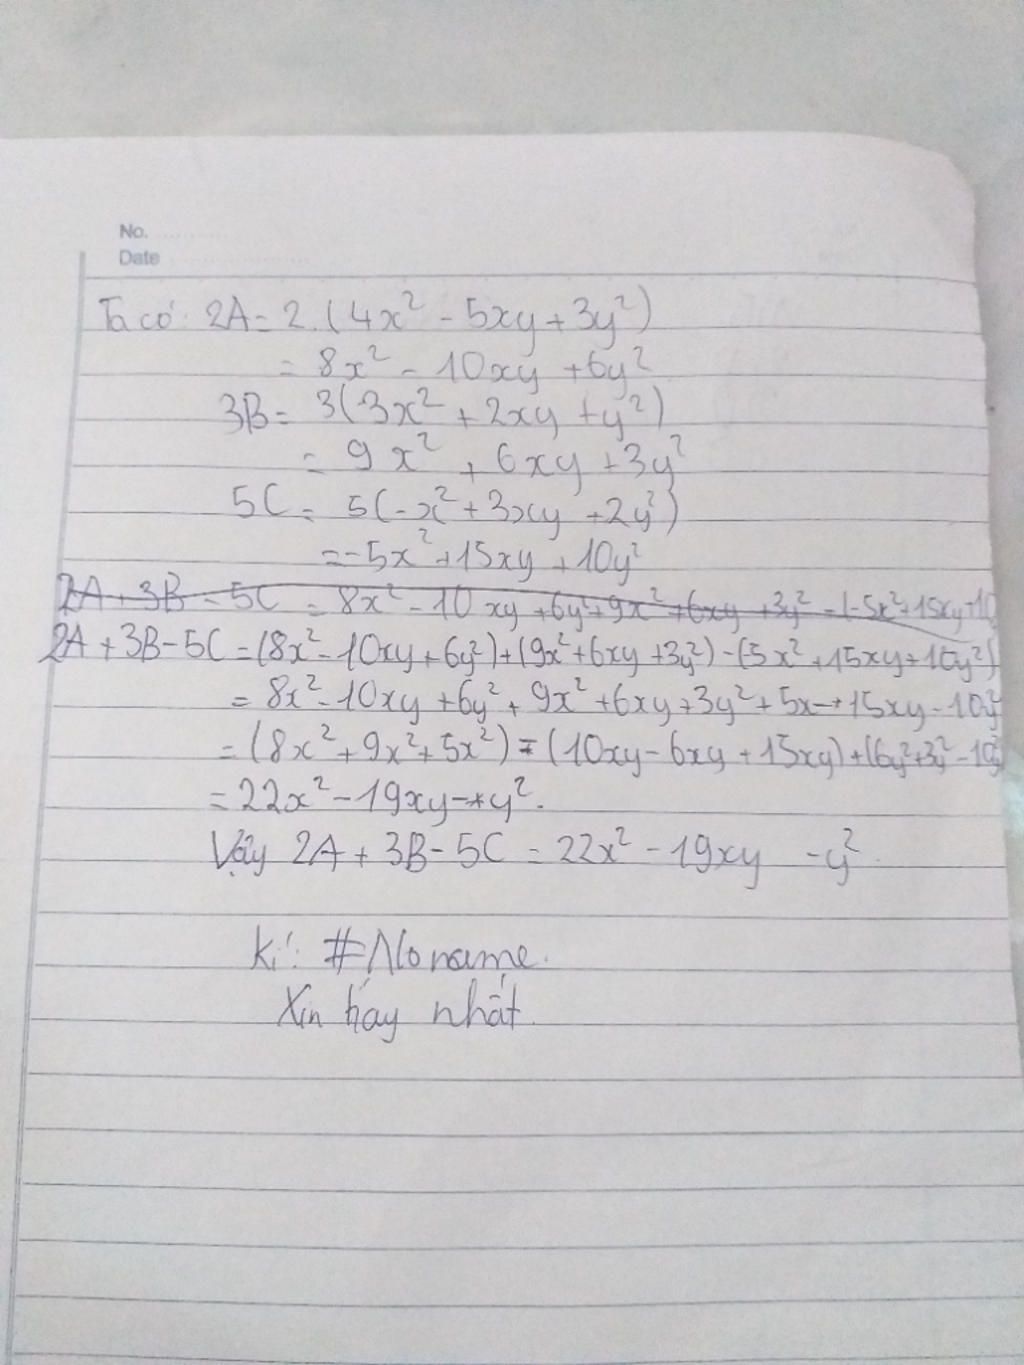 No.
Date
Ta có: 2A = 2.(4x² - 5xy + 3y²)
= 8x² - 10xy + 6y²
3B = 3(3x² + 2xy + y²)
= 9x² + 6xy + 3y²
5C = 5(-x² + 3xy + 2y²)
= -5x² + 15xy + 10y²
2A + 3B - 5C = 8x² - 10xy + 6y² + 9x² + 6xy + 3y² - (-5x² + 15xy + 10
2A + 3B - 5C = (8x² - 10xy + 6y²) + (9x² + 6xy + 3y²) - (5x² + 15xy + 10y²)
= 8x² - 10xy + 6y² + 9x² + 6xy + 3y² + 5x - 15xy - 10y²
= (8x² + 9x² + 5x²) - (10xy - 6xy + 15xy) + (6y² + 3y² - 10y²
= 22x² - 19xy - y².
Vậy 2A + 3B - 5C = 22x² - 19xy - y².
Kí: #Noname.
Xin hay nhất.